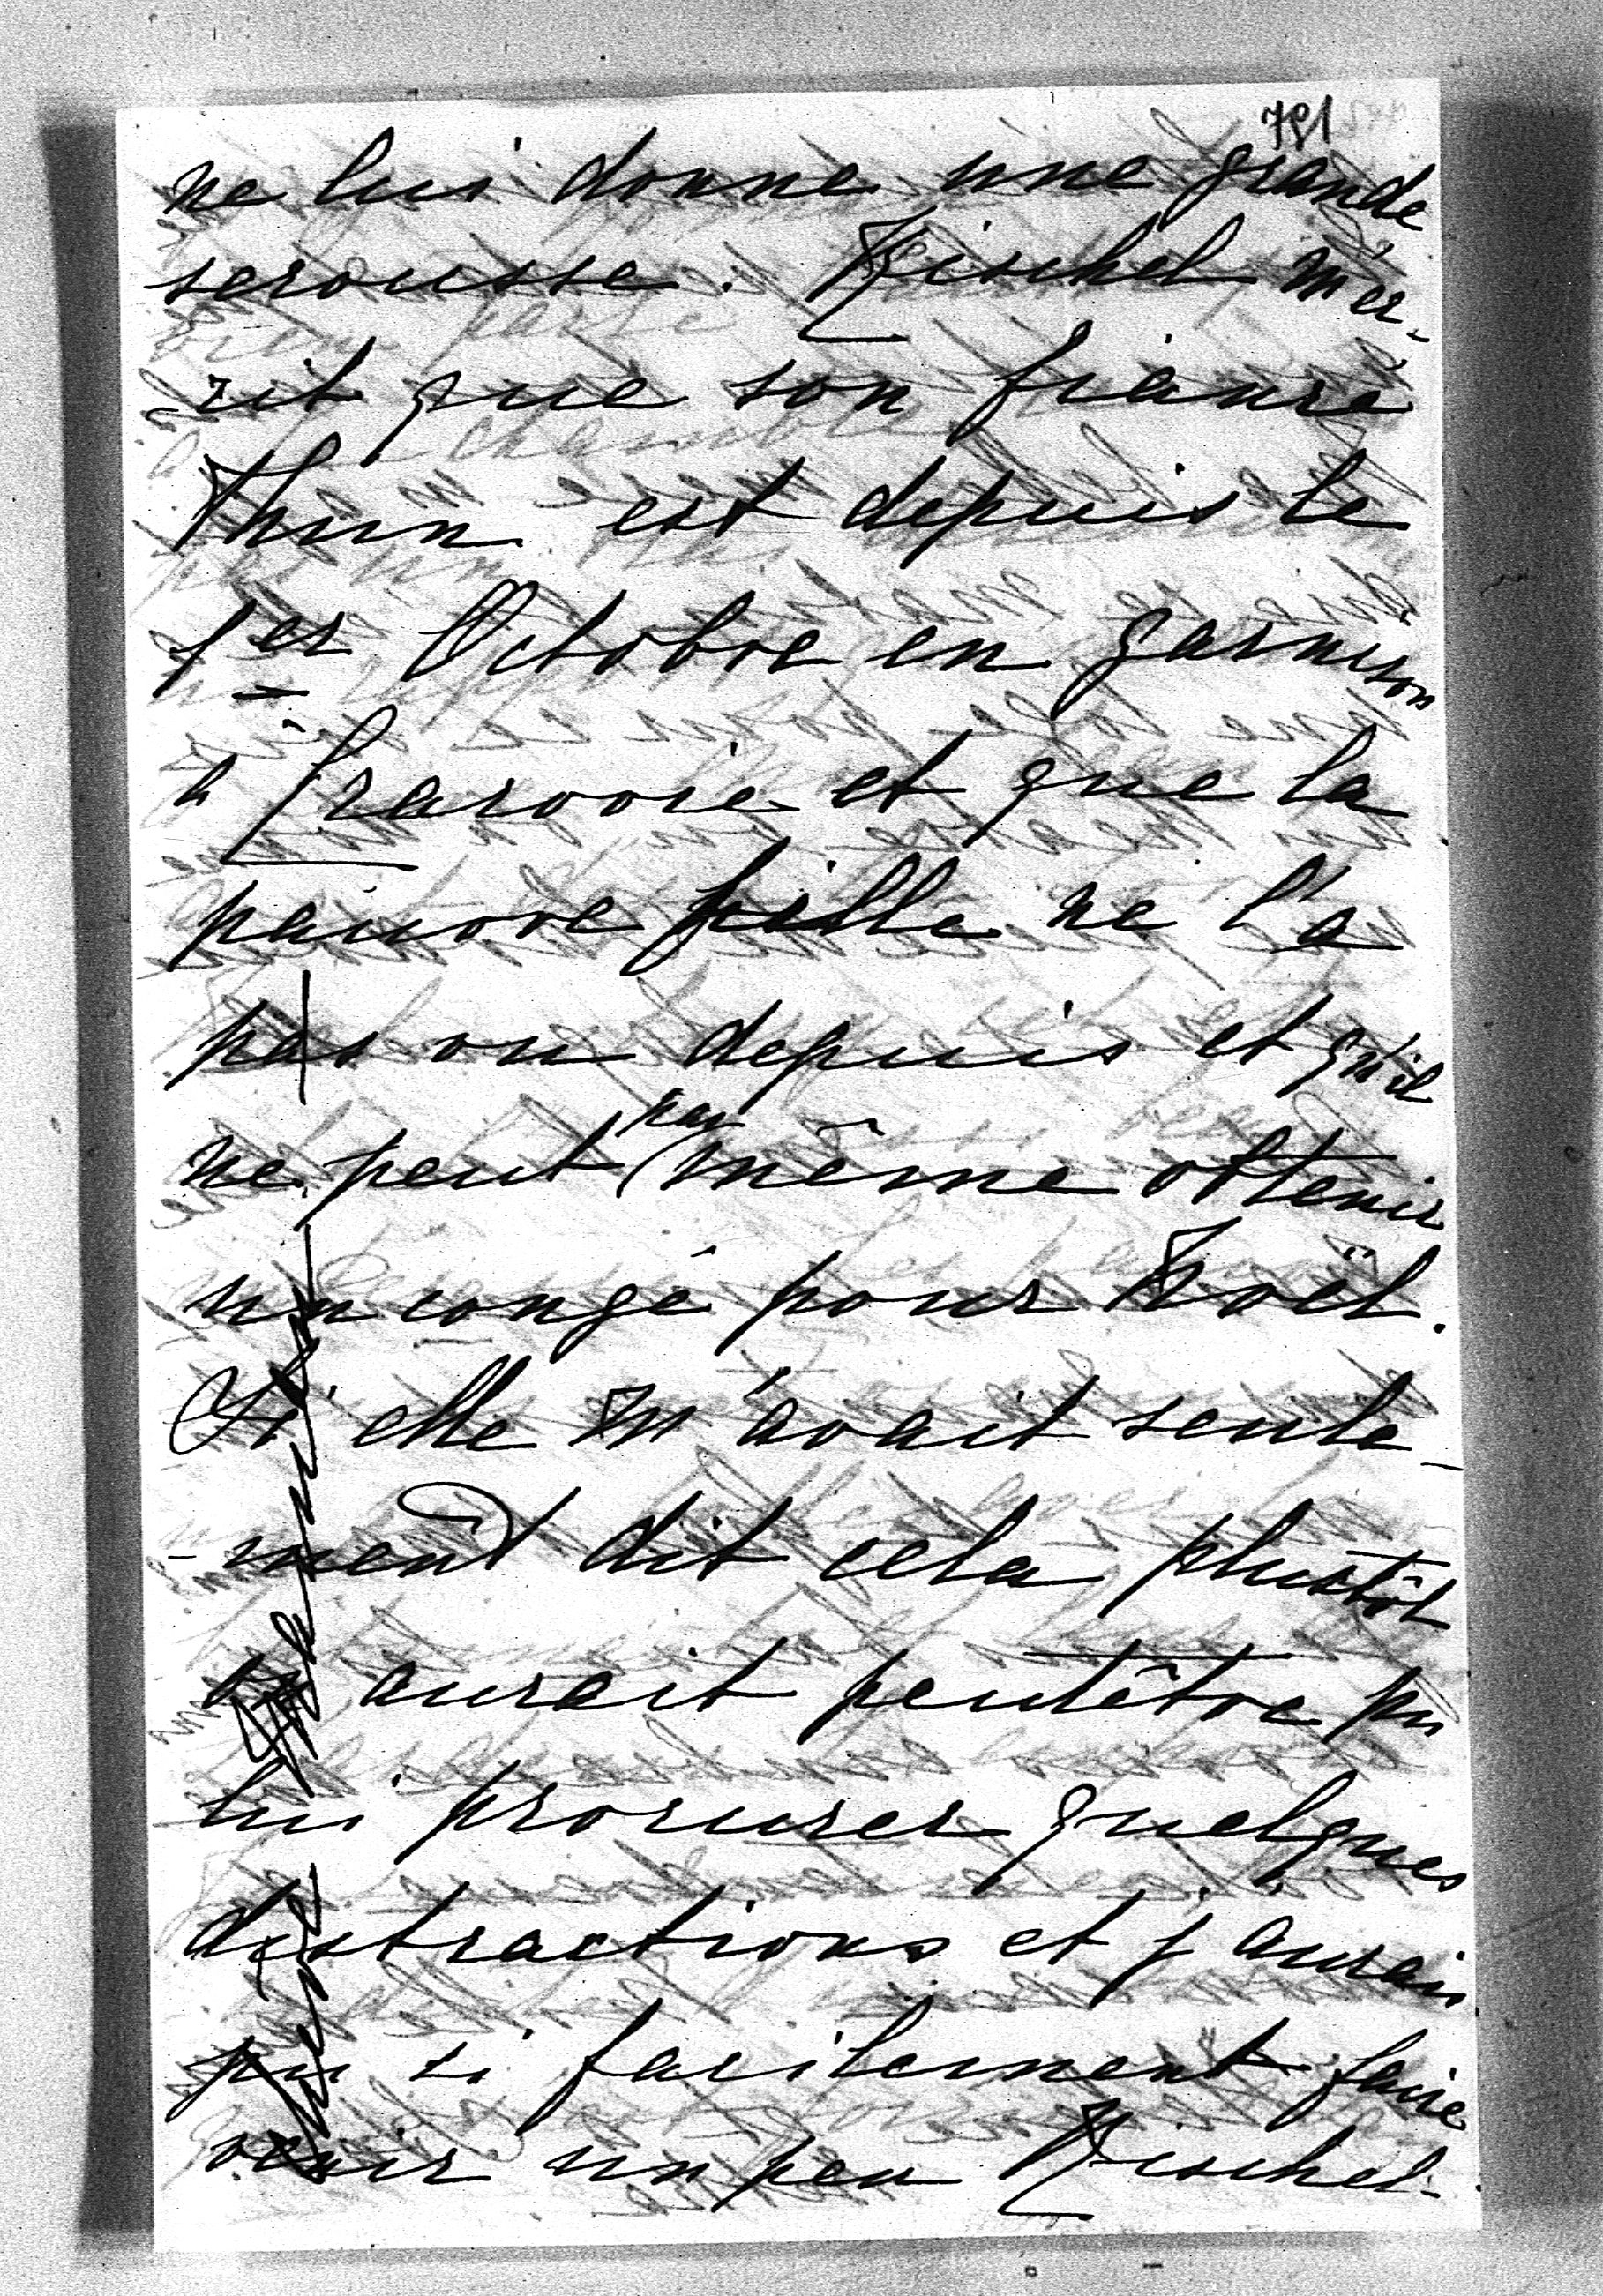 791
ne lui donne une grande
secousse. Zischel m'éc-
-rit que son fiancé
Thun est depuis le
1er Octobre en garnison
à Cracovie et que la
pauvre fille ne l'a
pas vu depuis et qu'il
ne peut pas même obtenir
un congé pour Noël.
Si elle m'avait seule-
-ment dit cela plustôt
on aurait peutêtre pu
lui procurer quelques
distractions et j'aurais
pu si facilement faire
venir un peu Zischel.